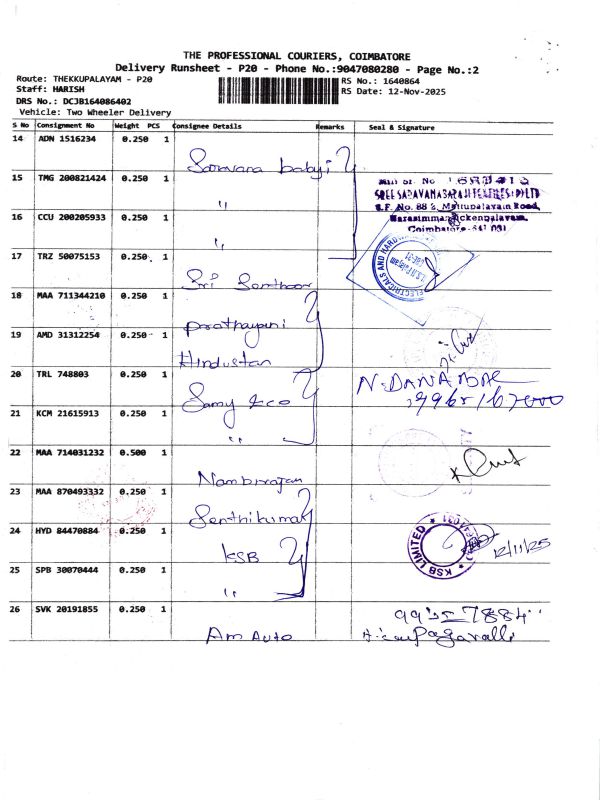 THE PROFESSIONAL COURIERS, COIMBATORE
Delivery Runsheet - P20 - Phone No.:9047080280 - Page No.:2
Route: THEKKUPALAYAM - P20
Staff: HARISH
RS No.: 1640864
RS Date: 12-Nov-2025
DRS No.: DCJB164086402
Vehicle: Two Wheeler Delivery
S No Consignment No Weight PCS Consignee Details Remarks Seal & Signature
14 ADN 1516234 0.250 1
15 TMG 200821424 0.250 1 "
SREE SARAVANABABAJI TEXTILES (P) LTD
S.F. No. 88 2, Mettupalayam Road,
16 CCU 200205933 0.250 1 "
Coimbatore-641 031
17 TRZ 50075153 0.250 1 Sri Santhoor
ELECTRICALS AND
18 MAA 711344210 0.250 1
19 AMD 31312254 0.250 1 Hindustan
20 TRL 748803 0.250 1 Samy & co
21 KCM 21615913 0.250 1 "
22 MAA 714031232 0.500 1 Nambirajan
23 MAA 870493332 0.250 1 Senthilkumar
24 HYD 84470884 0.250 1 KSB
KSB LIMITED
12/11/25
25 SPB 30070444 0.250 1 "
26 SVK 20191855 0.250 1 Am Auto